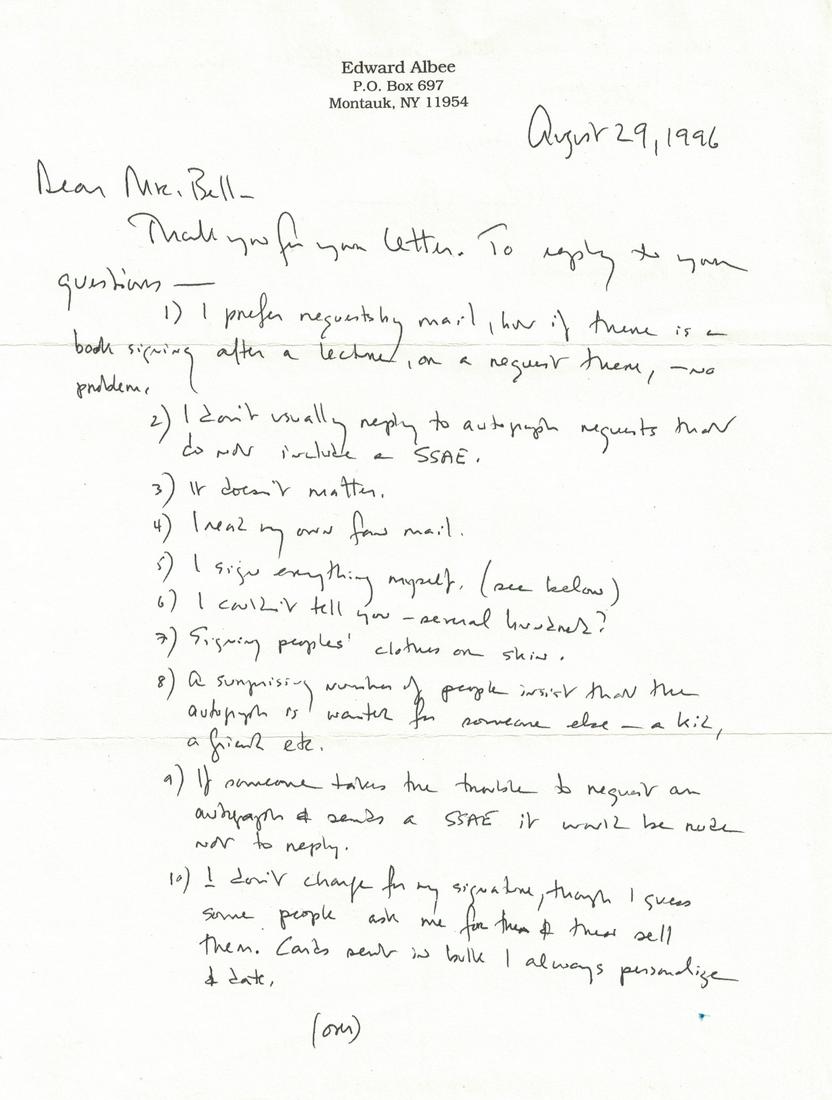 Edward Albee
P.O. Box 697
Montauk, NY 11954
August 29, 1996
Dear Mr. Bell –
Thank you for your letter. To reply to your
questions —
1) I prefer requests by mail, but if there is a
book signing after a lecture, or a request there, – no
problem.
2) I don't usually reply to autograph requests that
do not include a SSAE.
3) It doesn't matter.
4) I read my own fan mail.
5) I sign everything myself. (see below)
6) I couldn't tell you – several hundred?
7) Signing peoples' clothes or skin.
8) A surprising number of people insist that the
autograph is wanted for someone else – a kid,
a friend etc.
9) If someone takes the trouble to request an
autograph & sends a SSAE it would be rude
not to reply.
10) I don't charge for my signature, though I guess
some people ask me for them & then sell
them. Cards sent in bulk I always personalize
& date.
(over)